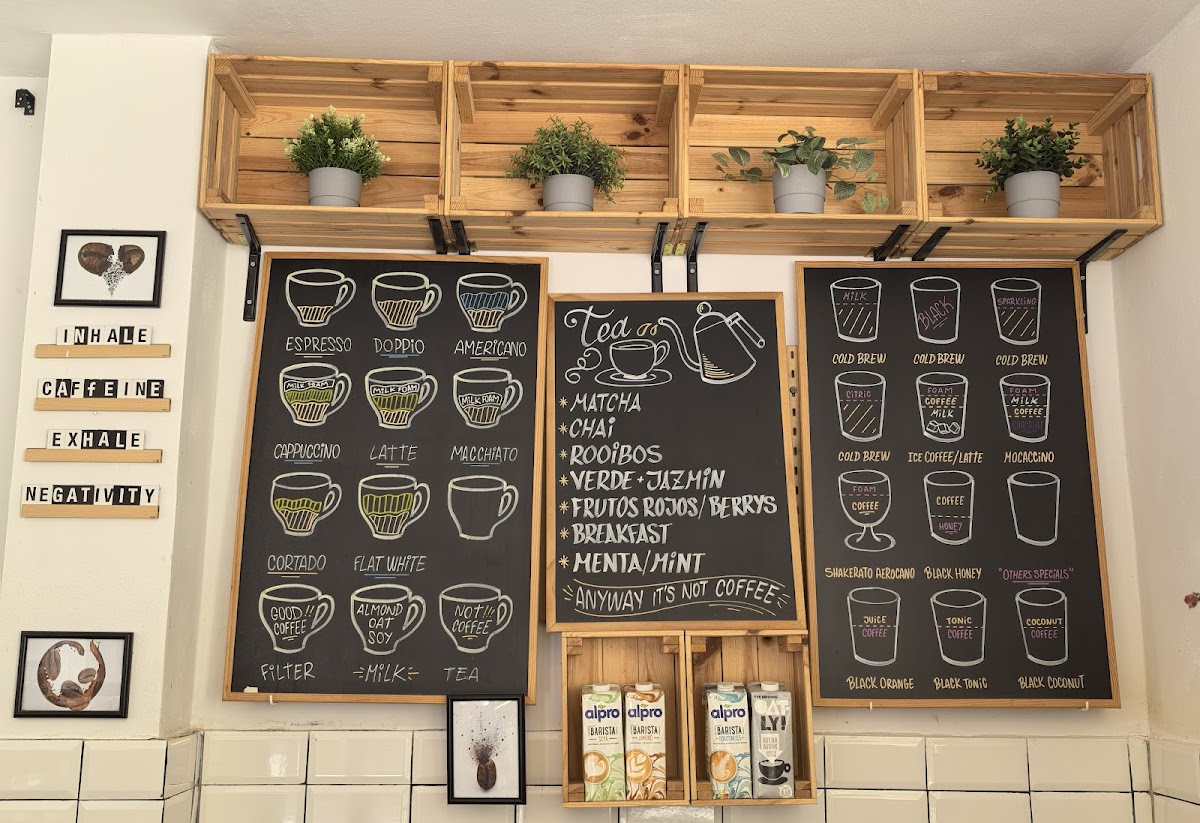 INHALE
CAFFEINE
EXHALE
NEGATIVITY
ESPRESSO
DOPPIO
AMERICANO
MILK FOAM
MILK FOAM
MILK FOAM
CAPPUCCINO
LATTE
MACCHIATO
CORTADO
FLAT WHITE
GOOD!!
COFFEE
ALMOND
OAT
SOY
NOT!!!
COFFEE
FILTER
MILK
TEA
Tea
*MATCHA
*CHAI
*ROOIBOS
*VERDE + JAZMIN
*FRUTOS ROJOS/BERRYS
*BREAKFAST
*MENTA/MINT
ANYWAY IT'S NOT COFFEE
MILK
BLACK
SPARKLING
COLD BREW
COLD BREW
COLD BREW
CITRIC
FOAM
COFFEE
MILK
FOAM
MILK
COFFEE
CHOCOLAT
COLD BREW
ICE COFFEE/LATTE
MOCACCINO
FOAM
COFFEE
COFFEE
HONEY
SHAKERATO AEROCANO
BLACK HONEY
"OTHERS SPECIALS"
JUICE
COFFEE
TONIC
COFFEE
COCONUT
COFFEE
BLACK ORANGE
BLACK TONIC
BLACK COCONUT
alpro
BARISTA
alpro
BARISTA
alpro
BARISTA
OAT-
LY!